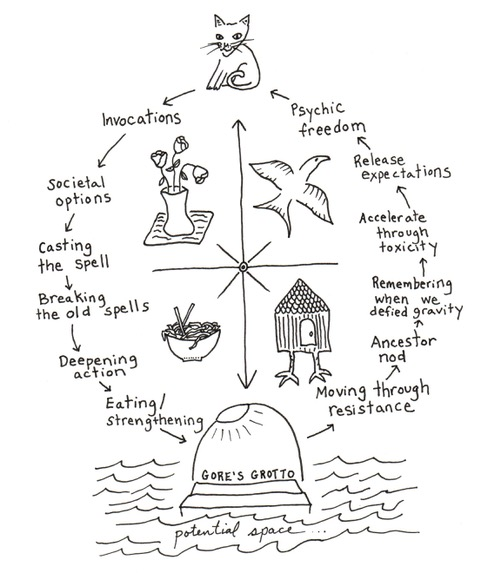 Invocations
Societal
options
Casting
the spell
Breaking
the old spells
Deepening
action
Eating/
strengthening
GORE'S GROTTO
potential space...
Moving through
resistance
Ancestor
nod
Remembering
when we
defied gravity
Accelerate
through
toxicity
Release
expectations
Psychic
freedom